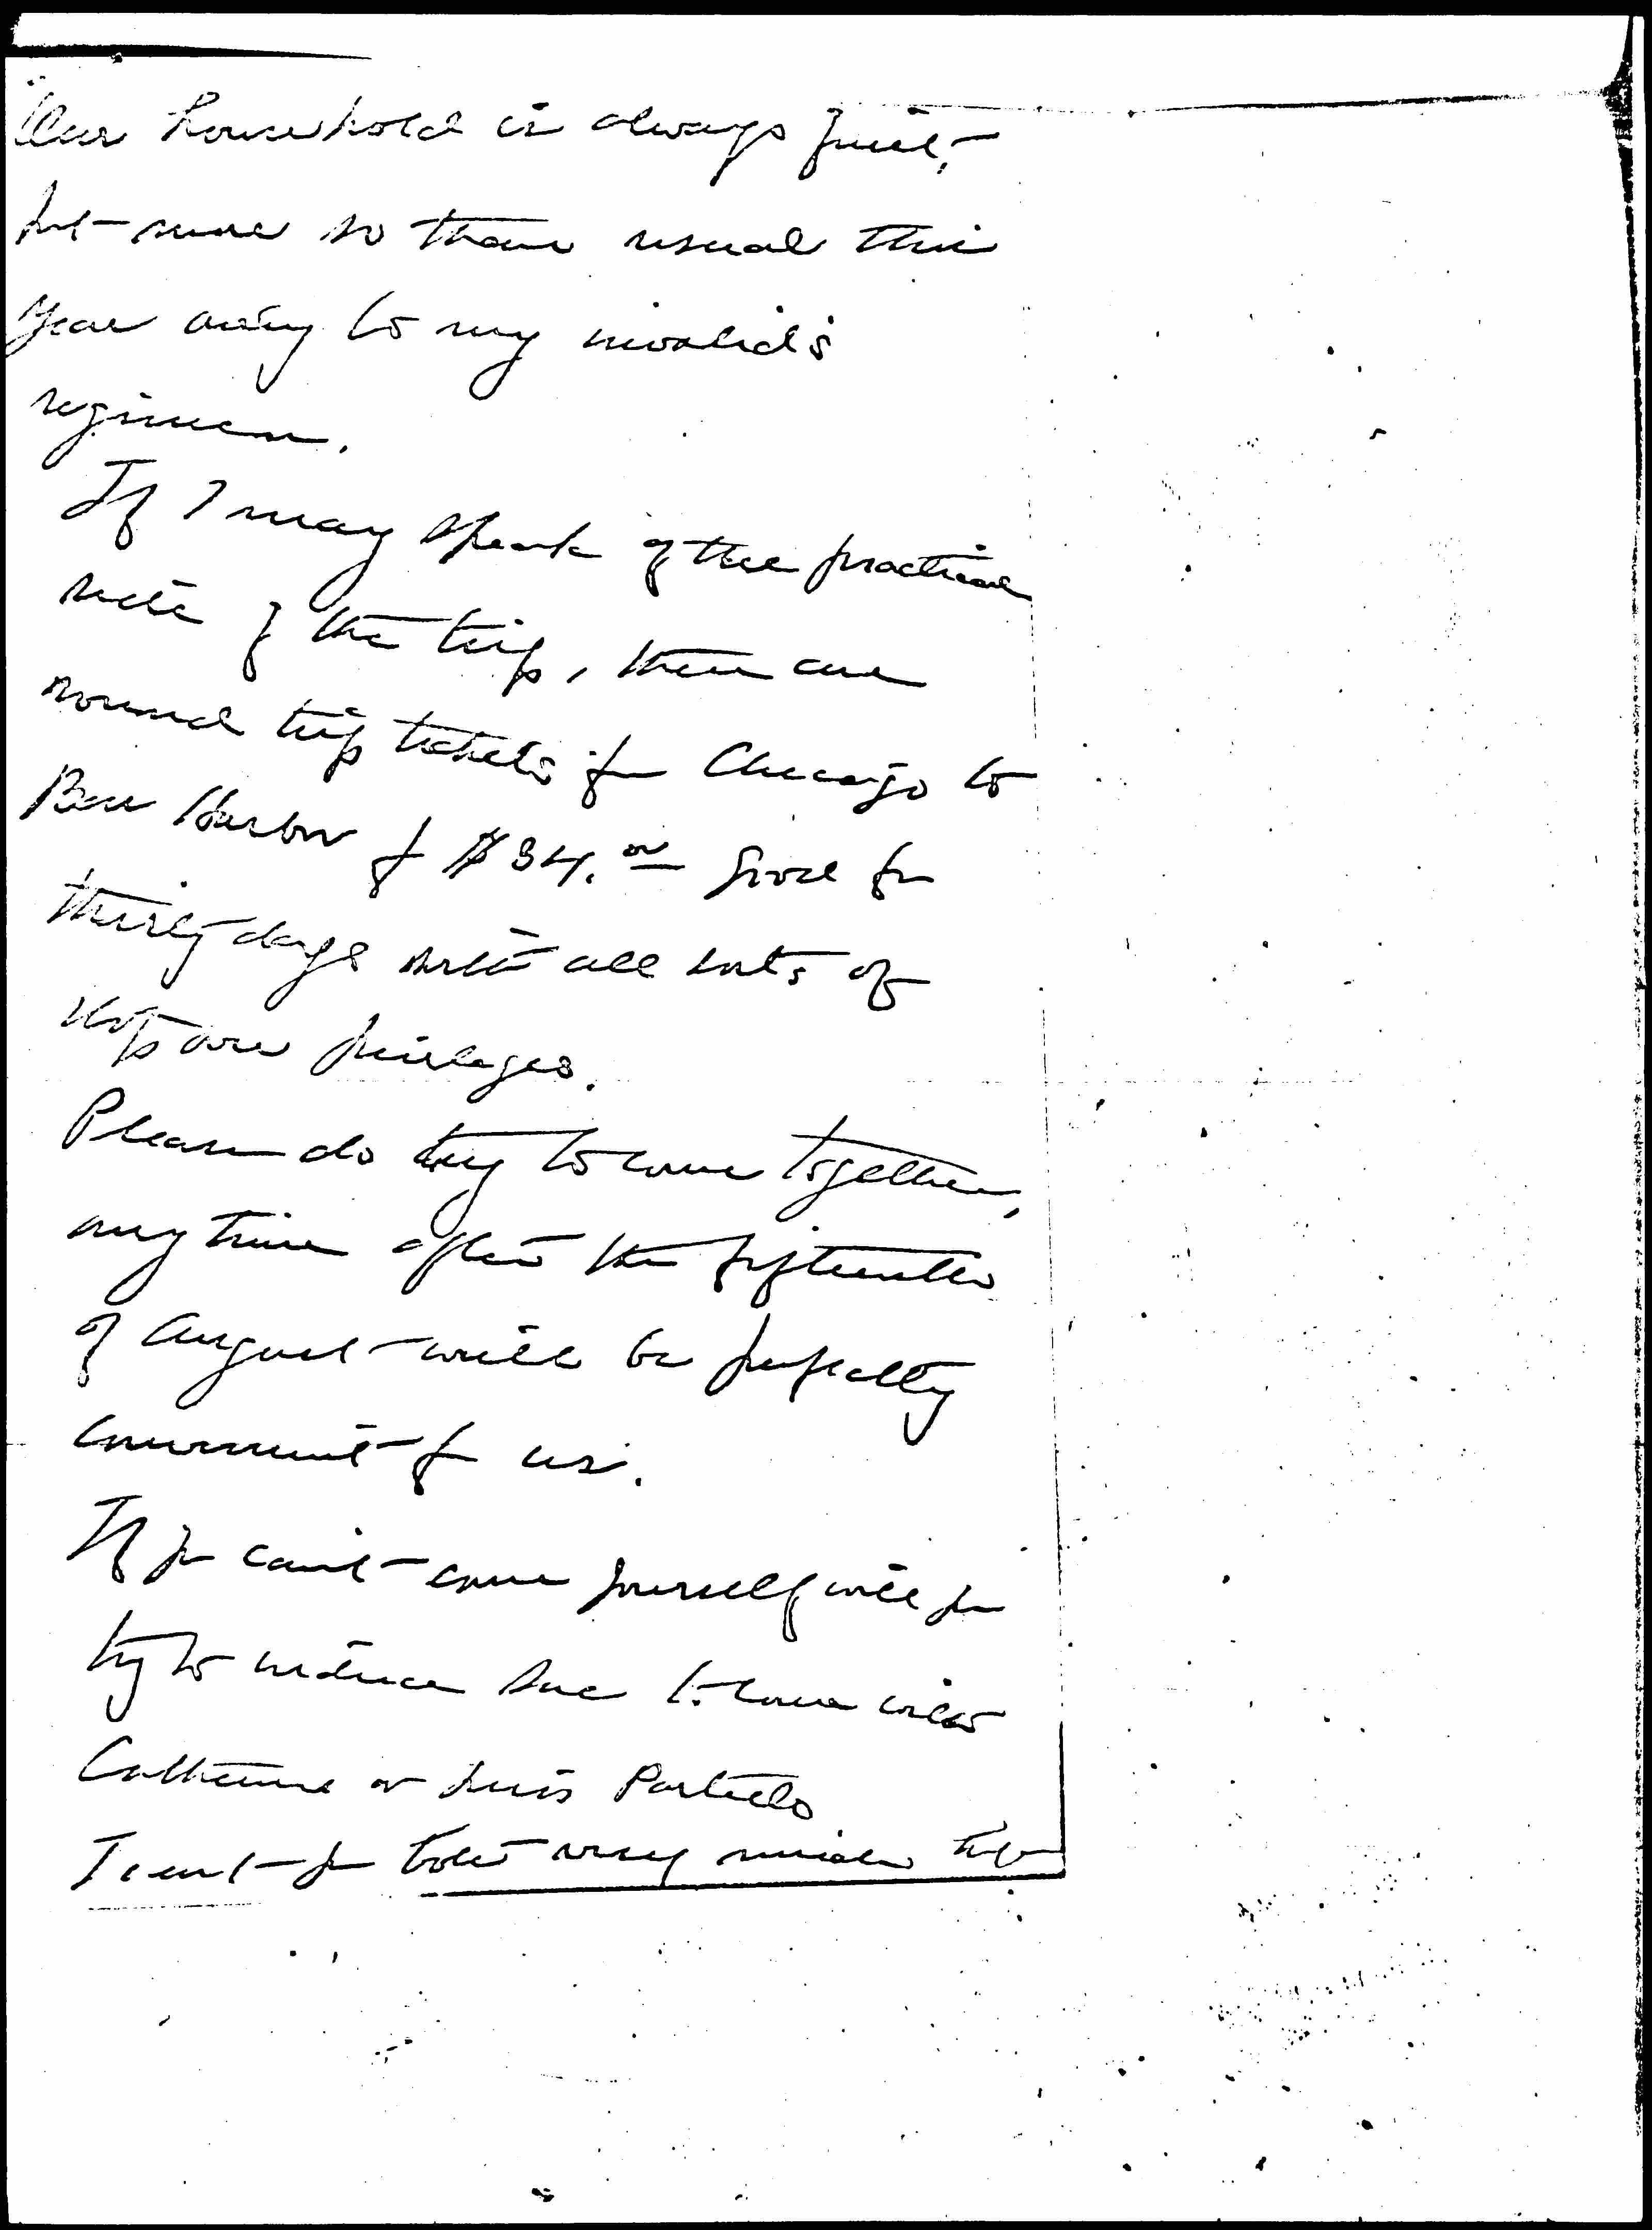 Our household is always quiet,
but more so than usual this
year owing to my invalid's
regimen.
If I may speak of the practical
side of the trip, there are
round trip tickets from Chicago to
Bar Harbor for $34.00 good for
thirty days with all sorts of
stop over privileges.
Please do try to come together,
any time after the fifteenth
of August will be perfectly
convenient for us.
If you can't come yourself will you
try to induce her to come with
Catherine or Miss
I want you both very much